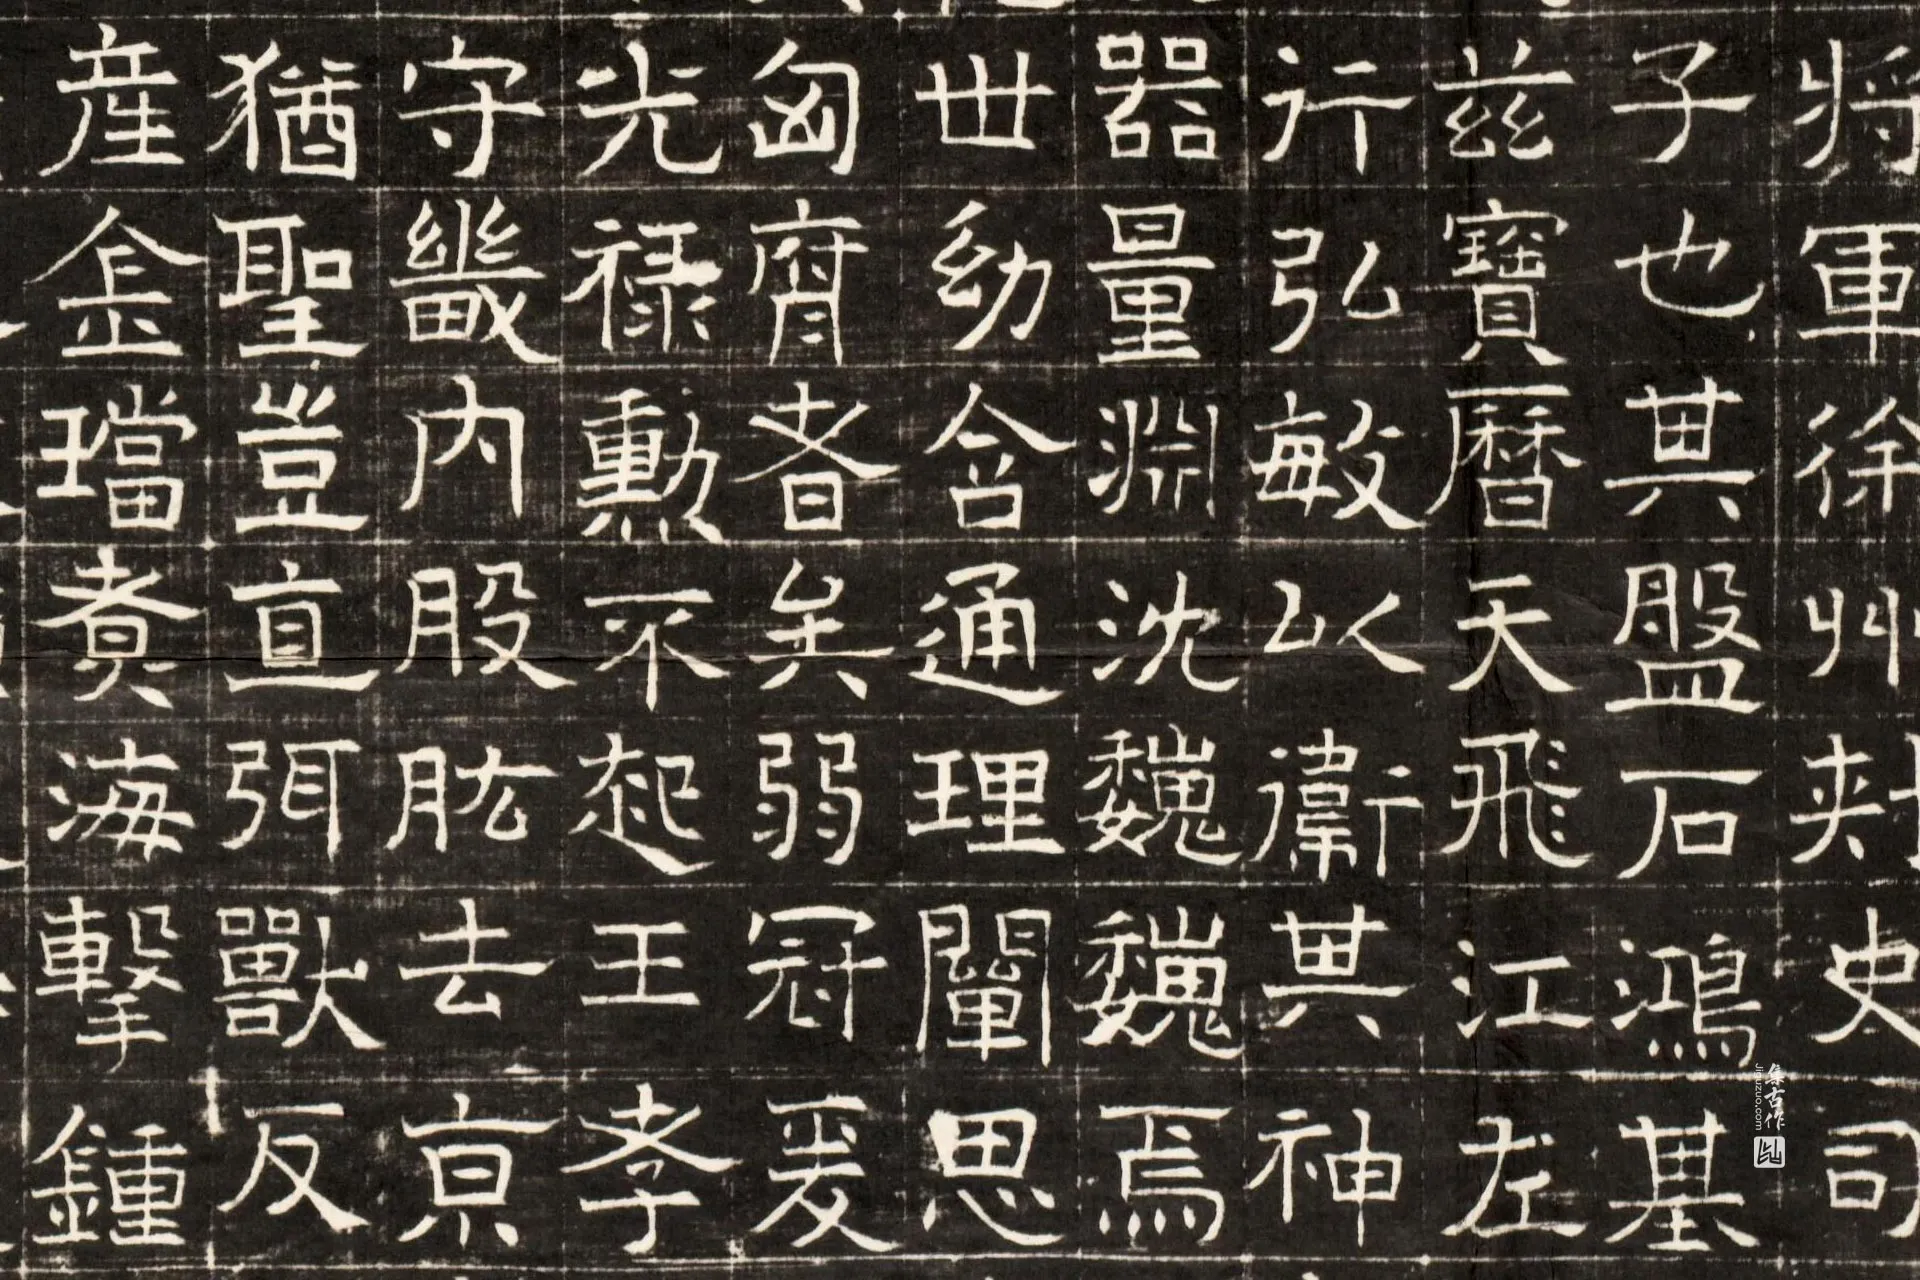 將軍徐州刺史司
子也其盤石鴻基
兹寶曆天飛江左
行弘敏以衛其神
器量淵沈巍巍焉
世幼含通理闡思
匈腐者矣弱冠爰
光禄勳不起王孝
守畿內股肱去京
猶聖豈直弭獸反
産金璫煮海擊鍾
集古作
jiguzuo.com